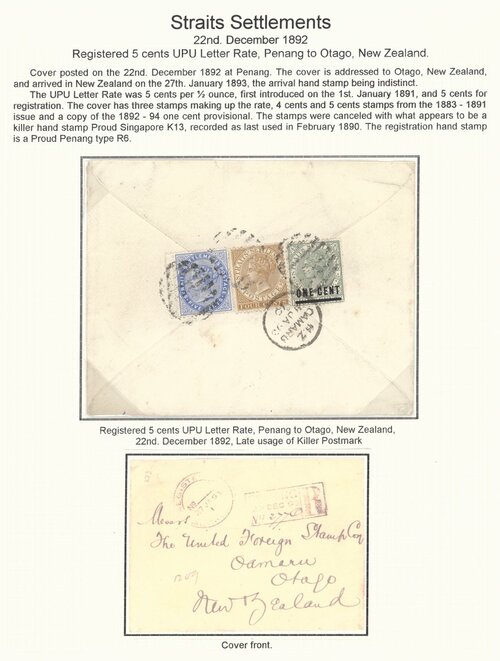 Straits Settlements
22nd. December 1892
Registered 5 cents UPU Letter Rate, Penang to Otago, New Zealand.
Cover posted on the 22nd. December 1892 at Penang. The cover is addressed to Otago, New Zealand,
and arrived in New Zealand on the 27th. January 1893, the arrival hand stamp being indistinct.
The UPU Letter Rate was 5 cents per ½ ounce, first introduced on the 1st. January 1891, and 5 cents for
registration. The cover has three stamps making up the rate, 4 cents and 5 cents stamps from the 1883 - 1891
issue and a copy of the 1892 - 94 one cent provisional. The stamps were canceled with what appears to be a
killer hand stamp Proud Singapore K13, recorded as last used in February 1890. The registration hand stamp
is a Proud Penang type R6.
FOUR
ONE CENT
OAMARU
JA
NZ
Registered 5 cents UPU Letter Rate, Penang to Otago, New Zealand,
22nd. December 1892, Late usage of Killer Postmark
R
Messrs
The United Foreign Stamp Coy
Oamaru
Otago
New Zealand
Cover front.